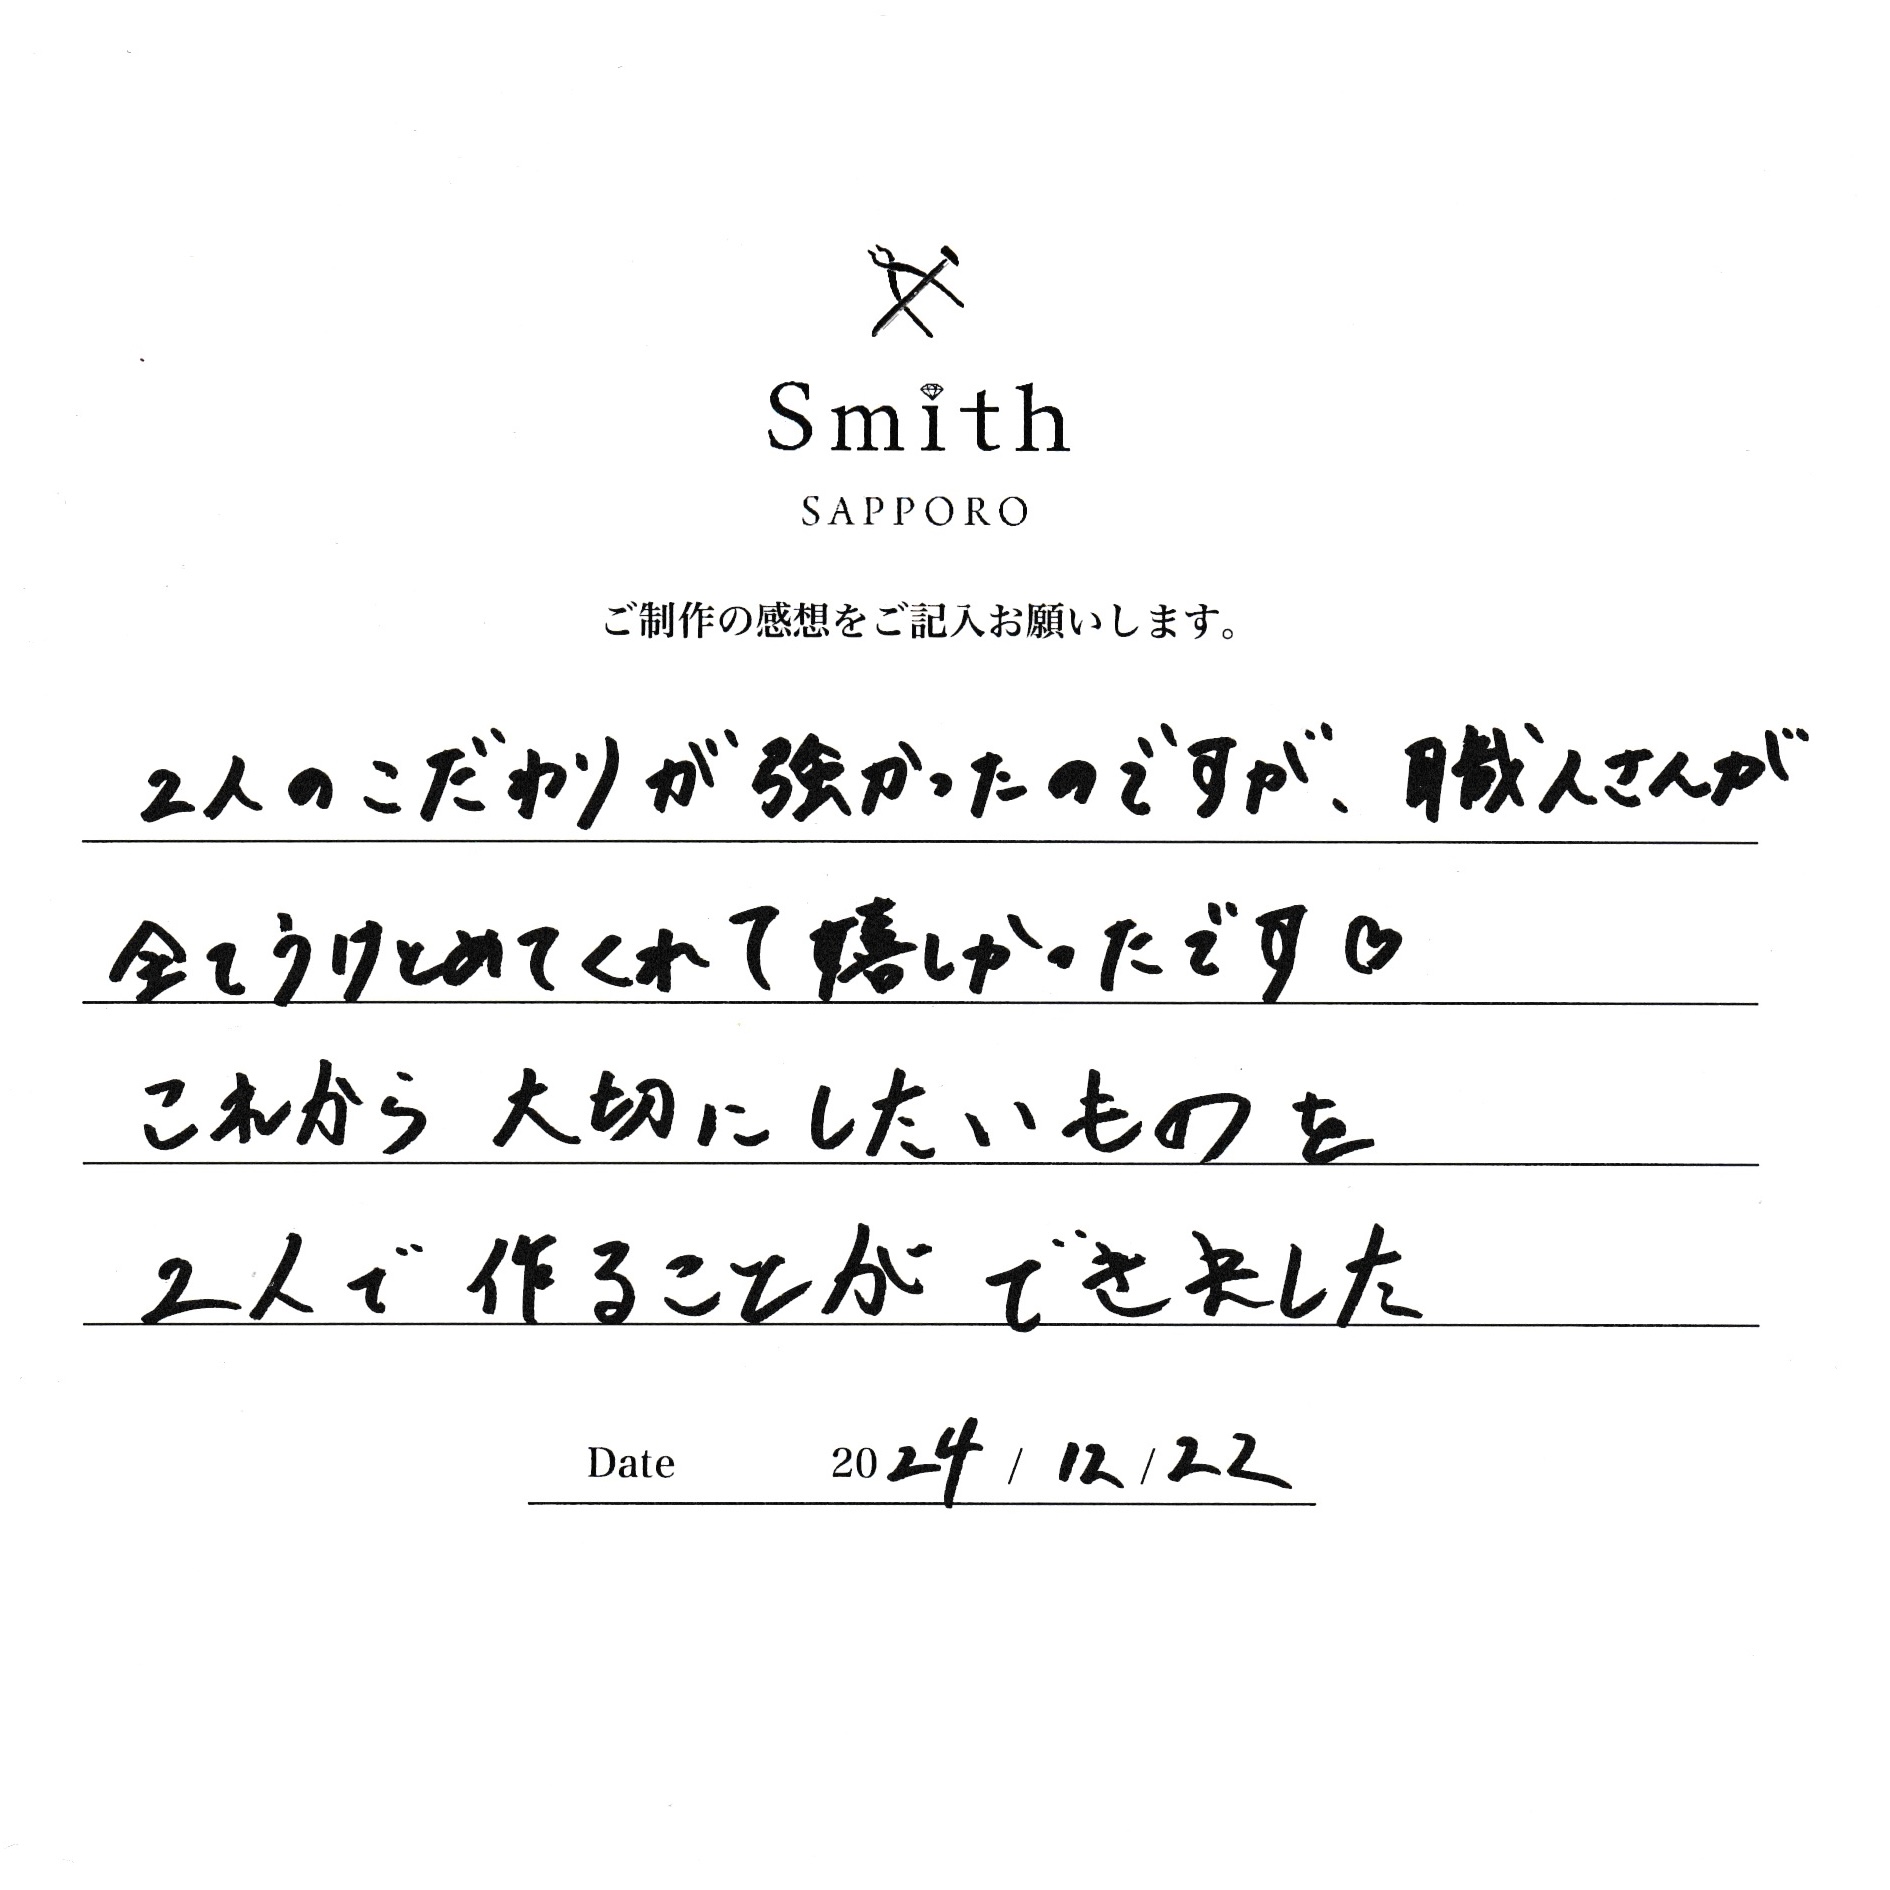 Smith
SAPPORO
ご制作の感想をご記入お願いします。
2人のこだわりが強かったのですが、職人さんが
全てうけとめてくれて嬉しかったです♡
これから大切にしたいものを
2人で作ることができました
Date 2024/12/22